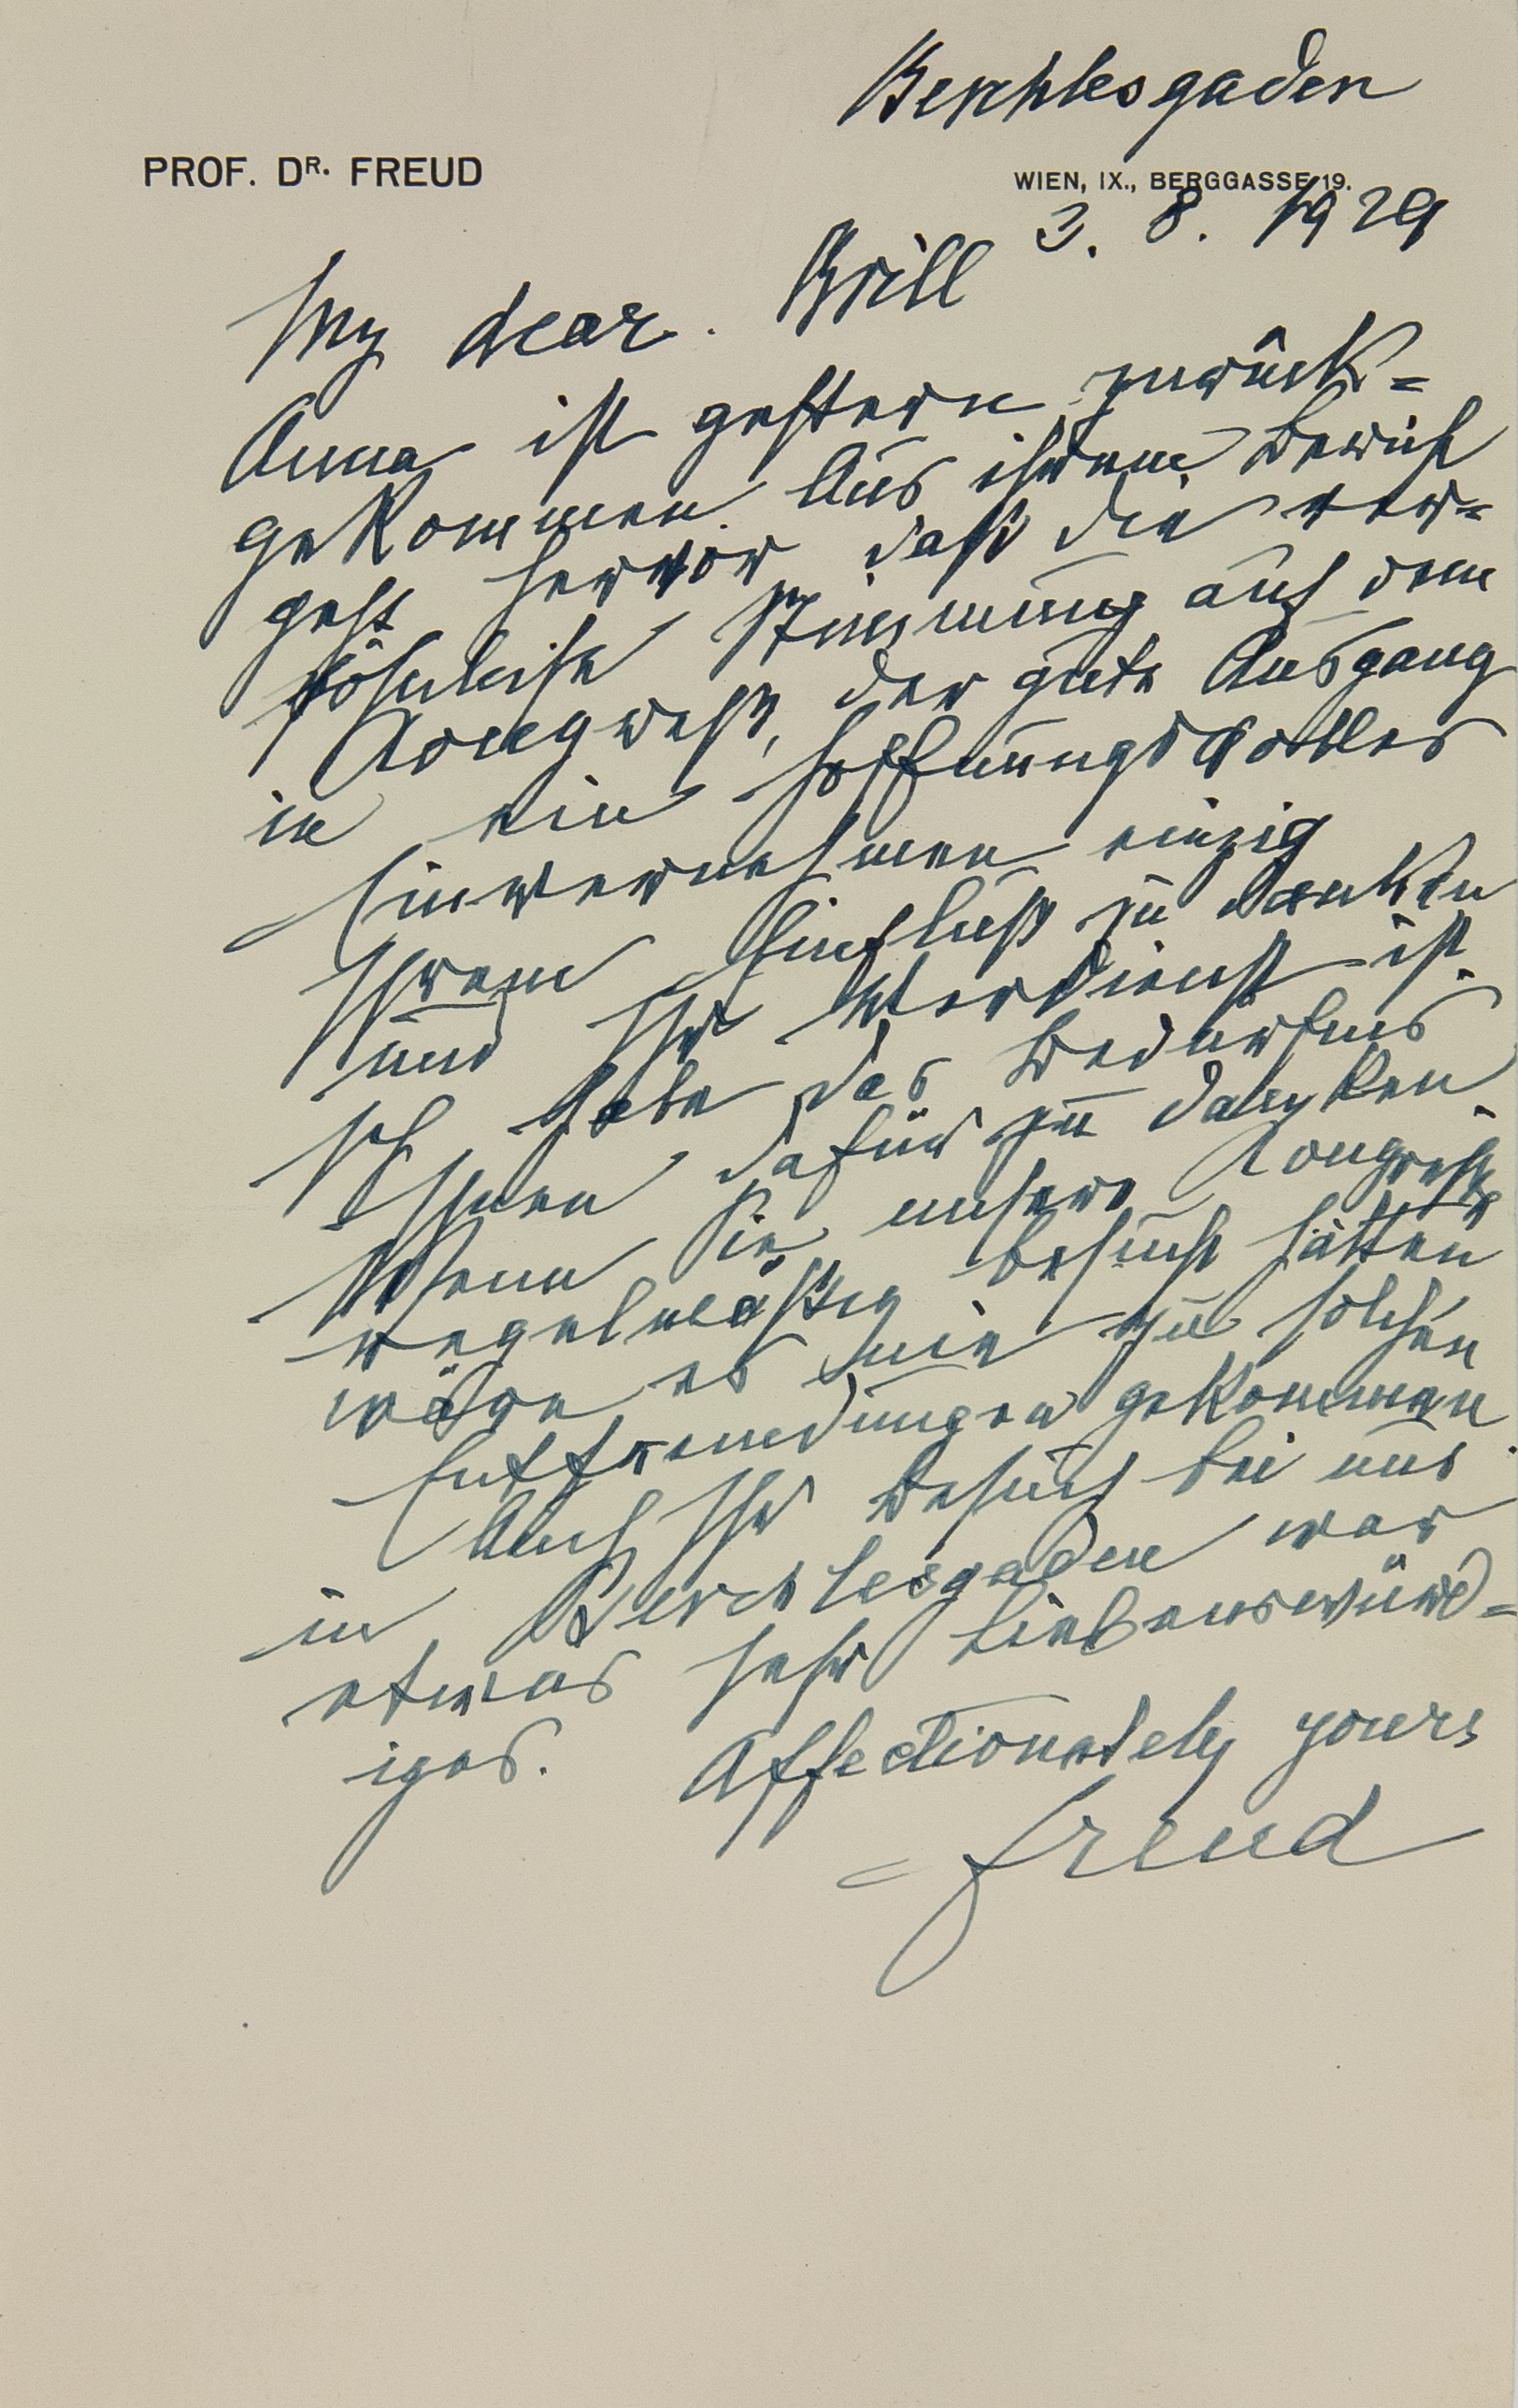 Berchtesgaden
PROF. DR. FREUD
WIEN, IX., BERGGASSE 19.
3. 8. 1929
My dear Brill
Anna ist gestern zurück=
gekommen. Aus ihrem Bericht
geht hervor daß die ver=
söhnliche Stimmung auf dem
Kongreß, der gute Ausgang
in ein hoffnungsvolles
Einvernehmen einzig
Ihrem Einfluß zu danken
und Ihr Verdienst ist.
Ich habe das Bedürfnis
Ihnen dafür zu danken.
Wenn Sie unsere Kongreße
regelmäßig besucht hätten
wäre es nie zu solchen
Entfremdungen gekommen.
Auch Ihr Besuch bei uns
in Berchtesgaden war
etwas sehr liebenswürd=
iges.
Affectionately yours
Freud